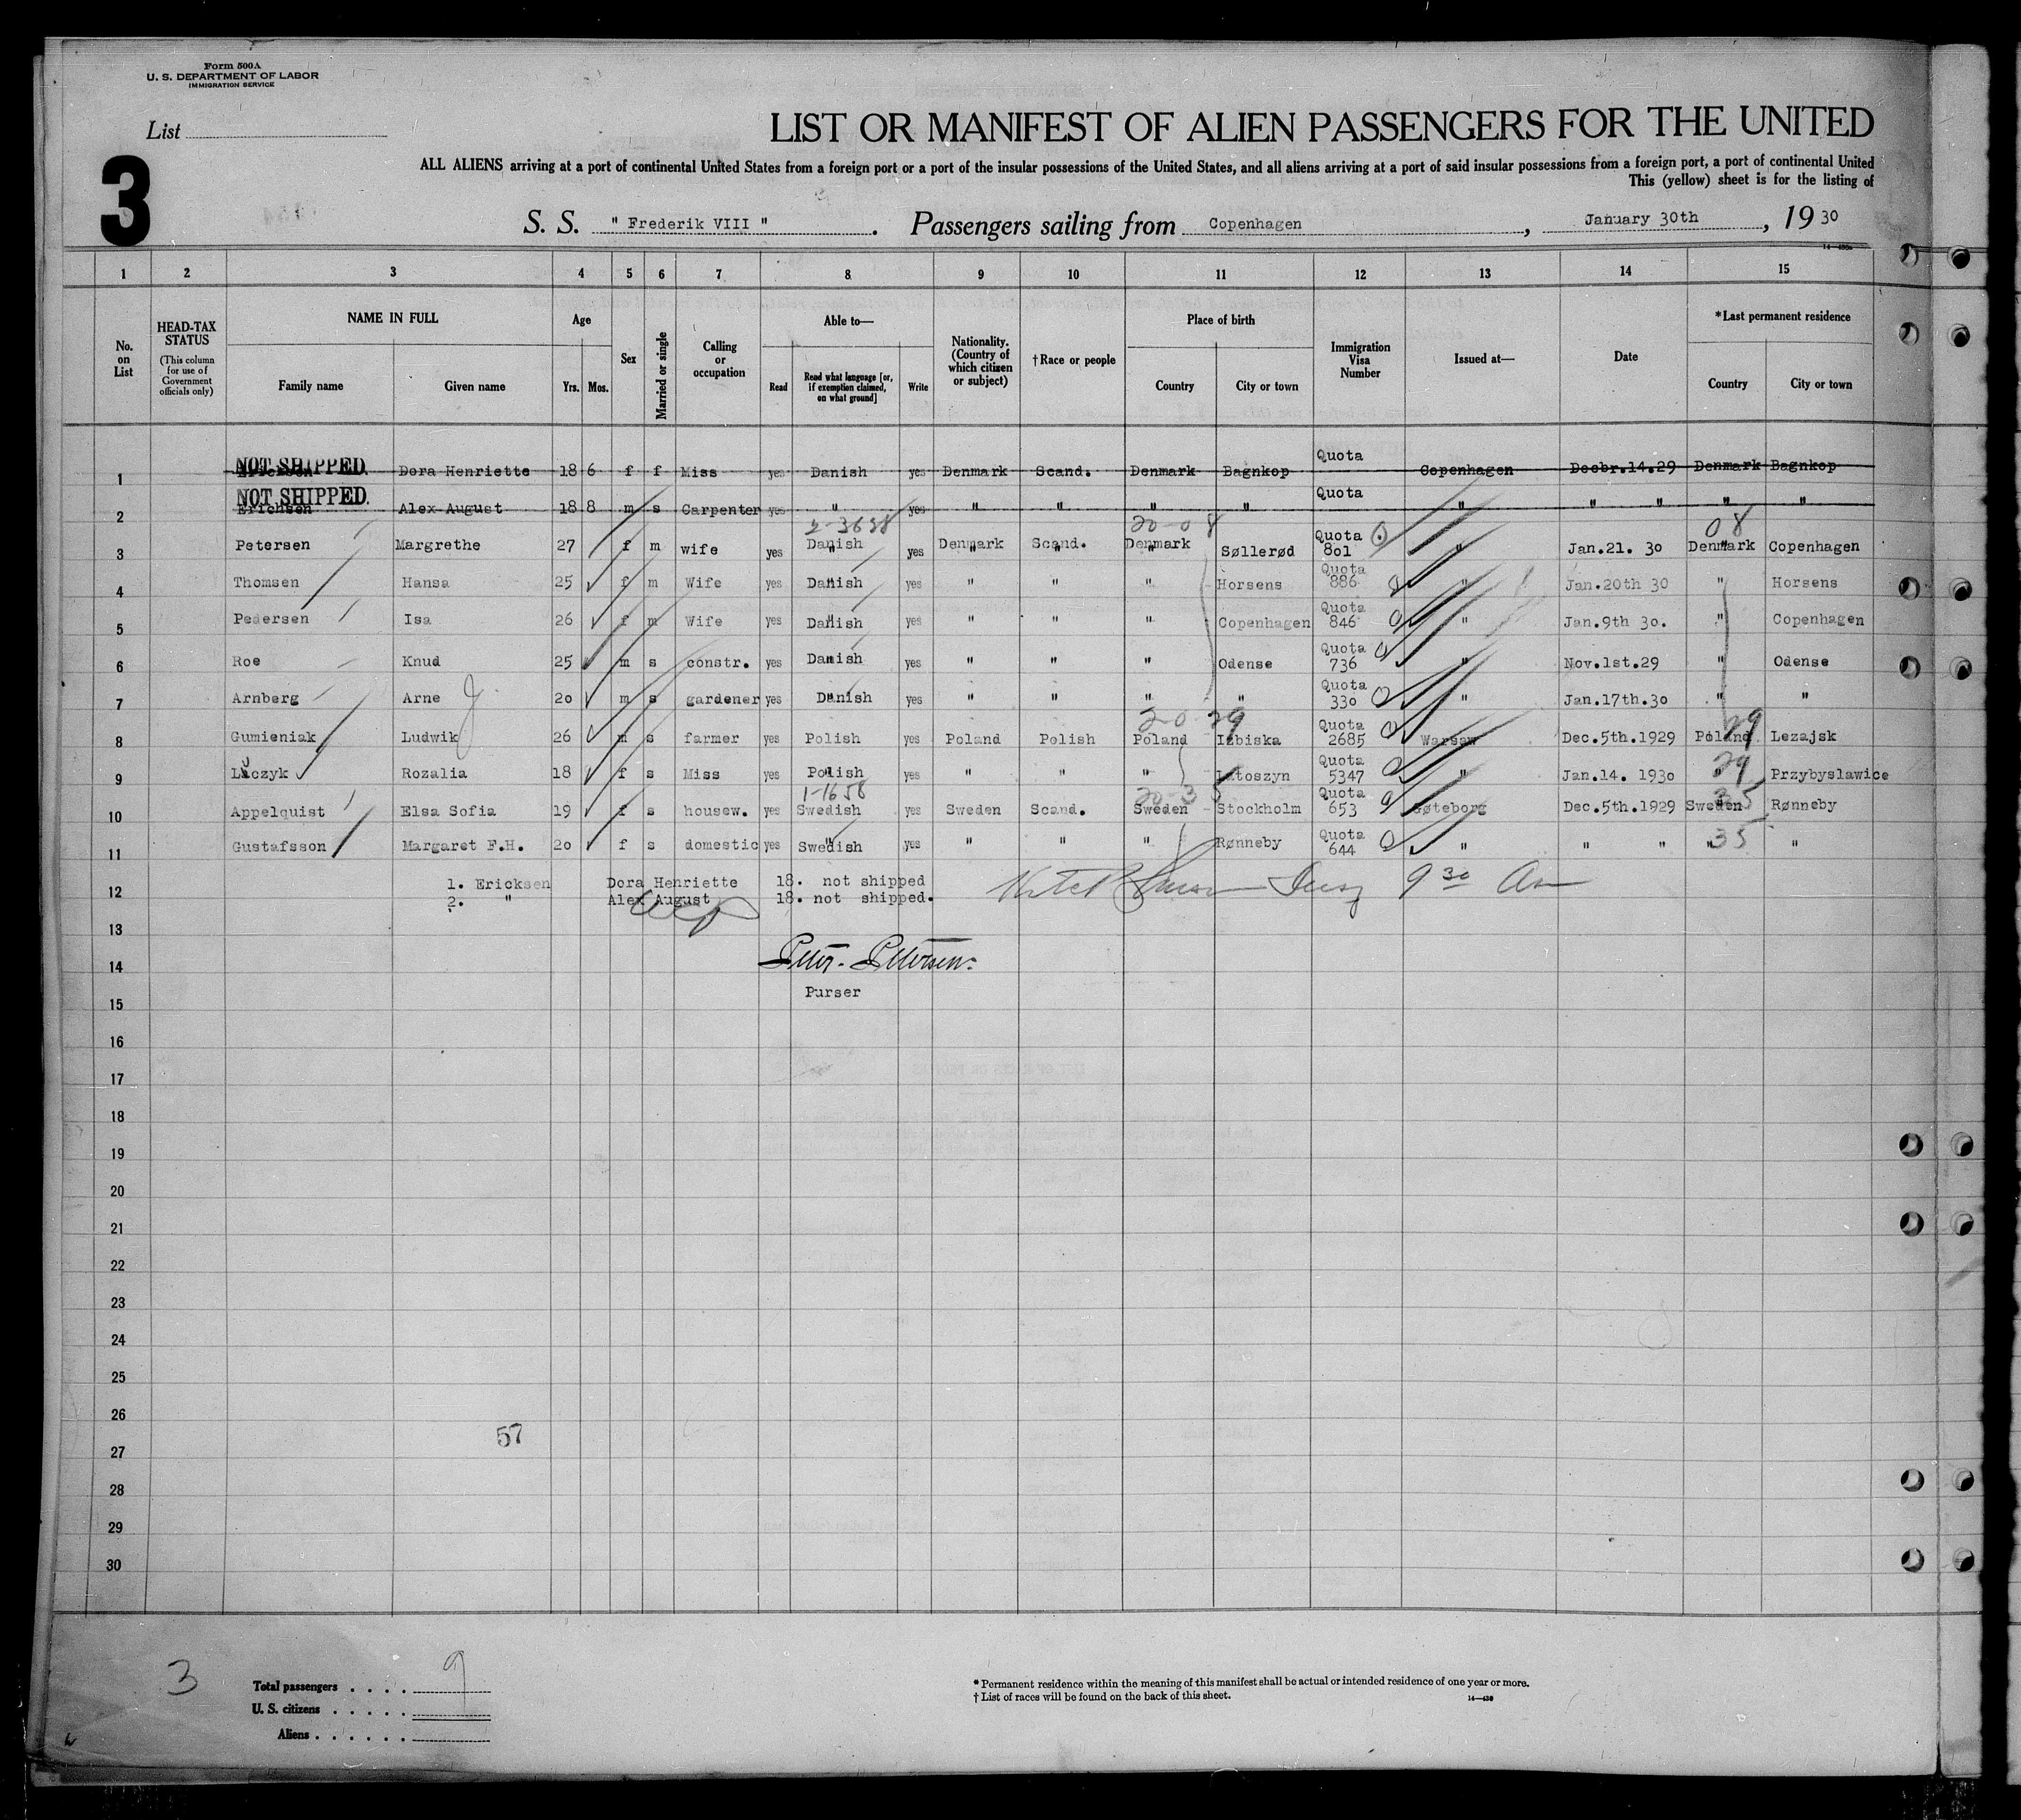 Form 500A
U. S. DEPARTMENT OF LABOR
IMMIGRATION SERVICE
List
3
LIST OR MANIFEST OF ALIEN PASSENGERS FOR THE UNITED
ALL ALIENS arriving at a port of continental United States from a foreign port or a port of the insular possessions of the United States, and all aliens arriving at a port of said insular possessions from a foreign port, a port of continental United
This (yellow) sheet is for the listing of
S. S. " Frederik VIII " . Passengers sailing from Copenhagen , January 30th , 19 30
14—430a
1 2 3 4 5 6 7 8 9 10 11 12 13 14 15
No. on List
HEAD-TAX STATUS
(This column for use of Government officials only)
NAME IN FULL
Family name Given name
Age
Yrs. Mos.
Sex
Married or single
Calling or occupation
Able to—
Read
Read what language [or, if exemption claimed, on what ground]
Write
Nationality. (Country of which citizen or subject)
† Race or people
Place of birth
Country City or town
Immigration Visa Number
Issued at—
Date
*Last permanent residence
Country City or town
NOT SHIPPED.
1 Ericksen Dora Henriette 18 6 f f Miss yes Danish yes Denmark Scand. Denmark Bagnkop Quota Copenhagen Decbr.14.29 Denmark Bagnkop
NOT SHIPPED.
2 Erichsen Alex August 18 8 m s Carpenter yes " yes " " " " Quota " " " " "
2-3628 20-08 08
3 Petersen Margrethe 27 f m wife yes Danish yes Denmark Scand. Denmark Søllerød Quota 801 " Jan.21. 30 Denmark Copenhagen
4 Thomsen Hansa 25 f m Wife yes Danish yes " " " Horsens Quota 886 " Jan.20th 30 " Horsens
5 Pedersen Isa 26 f m Wife yes Danish yes " " " Copenhagen Quota 846 " Jan.9th 30. " Copenhagen
6 Roe Knud 25 m s constr. yes Danish yes " " " Odense Quota 736 " Nov.1st.29 " Odense
7 Arnberg Arne 20 m s gardener yes Danish yes " " " " Quota 330 " Jan.17th.30 " "
20 29 29
8 Gumieniak Ludwik 26 m s farmer yes Polish yes Poland Polish Poland Izbiska Quota 2685 Warsaw Dec.5th.1929 Poland Lezajsk
9 Laczyk Rozalia 18 f s Miss yes Polish yes " " " Latoszyn Quota 5347 " Jan.14. 1930 " 29 Przybyslawice
1-1658 20-35
10 Appelquist Elsa Sofia 19 f s housew. yes Swedish yes Sweden Scand. Sweden Stockholm Quota 653 Gøteborg Dec.5th.1929 Sweden 35 Rønneby
11 Gustafsson Margaret F.H. 20 f s domestic yes Swedish yes " " " Rønneby Quota 644 " " " " 35 "
12 1. Ericksen Dora Henriette 18. not shipped
2. " Alex August 18. not shipped.
9 30 Am
13
Peter Petersen
14
Purser
15
16
17
18
19
20
21
22
23
24
25
26
57
27
28
29
30
3
Total passengers . . . . 9
U. S. citizens . . . . .
Aliens . . . . . .
* Permanent residence within the meaning of this manifest shall be actual or intended residence of one year or more.
† List of races will be found on the back of this sheet. 14—430